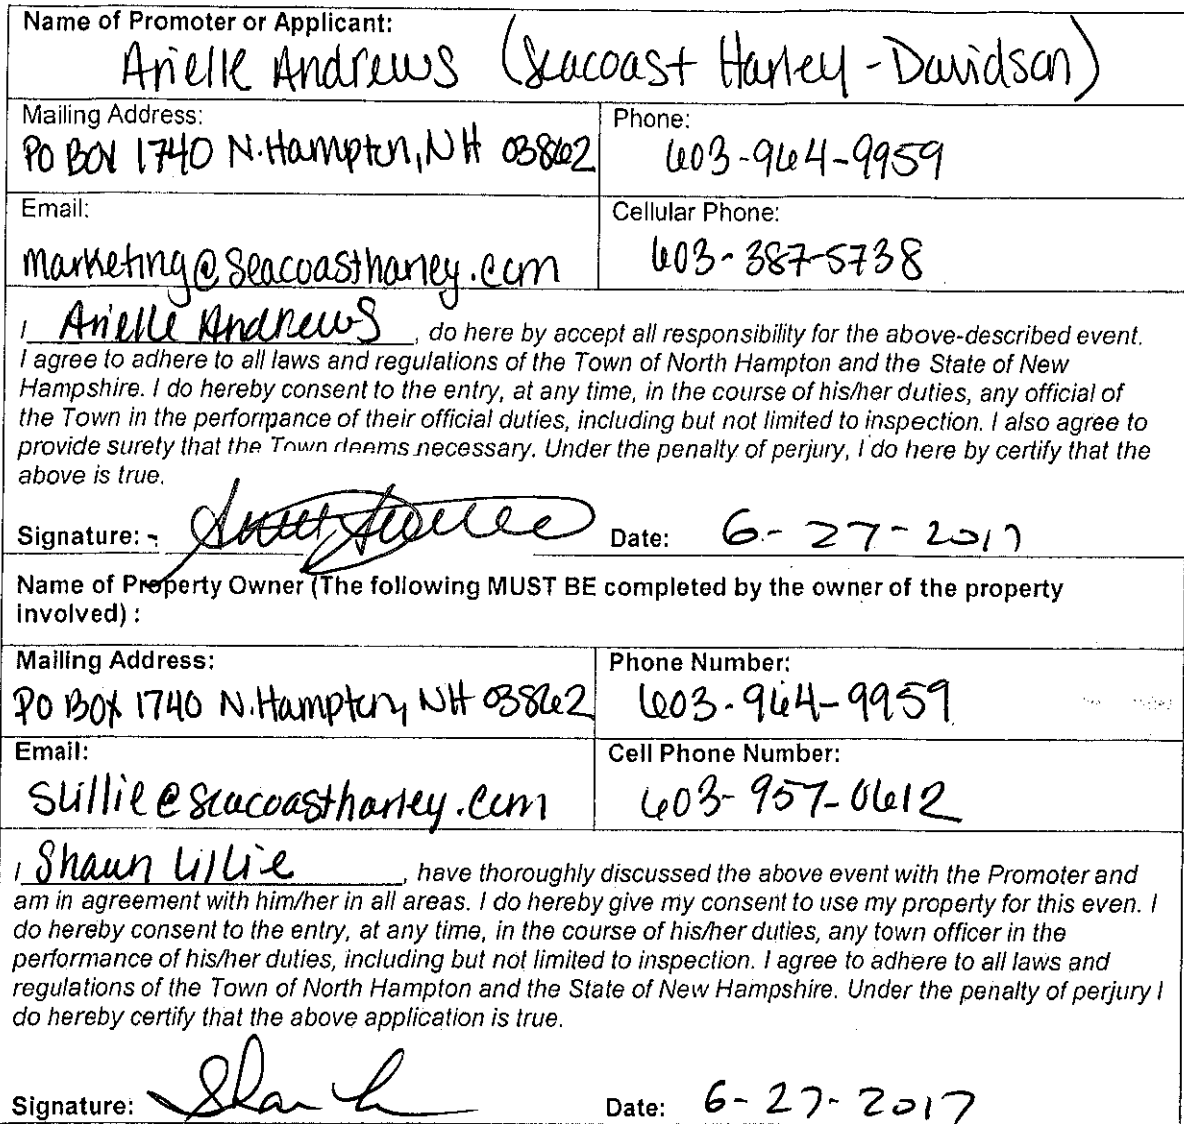 Name of Promoter or Applicant:
Arielle Andrews (Seacoast Harley-Davidson)
Mailing Address:
PO BOX 1740 N.Hampton, NH 03862
Phone:
603-964-9959
Email:
marketing@seacoastharley.com
Cellular Phone:
603-387-5738
I Arielle Andrews, do here by accept all responsibility for the above-described event.
I agree to adhere to all laws and regulations of the Town of North Hampton and the State of New
Hampshire. I do hereby consent to the entry, at any time, in the course of his/her duties, any official of
the Town in the performance of their official duties, including but not limited to inspection. I also agree to
provide surety that the Town deems necessary. Under the penalty of perjury, I do here by certify that the
above is true.
Signature: Date: 6-27-2017
Name of Property Owner (The following MUST BE completed by the owner of the property
involved) :
Mailing Address:
PO BOX 1740 N.Hampton, NH 03862
Phone Number:
603-964-9959
Email:
slillie@seacoastharley.com
Cell Phone Number:
603-957-0612
I Shaun Lillie, have thoroughly discussed the above event with the Promoter and
am in agreement with him/her in all areas. I do hereby give my consent to use my property for this even. I
do hereby consent to the entry, at any time, in the course of his/her duties, any town officer in the
performance of his/her duties, including but not limited to inspection. I agree to adhere to all laws and
regulations of the Town of North Hampton and the State of New Hampshire. Under the penalty of perjury I
do hereby certify that the above application is true.
Signature: Date: 6-27-2017